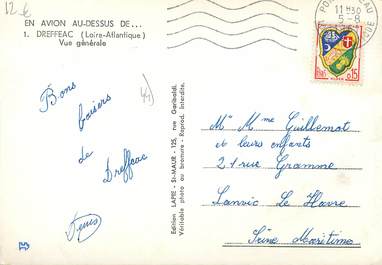 12 €
EN AVION AU-DESSUS DE...
1. DREFFEAC (Loire-Atlantique)
Vue générale
Bons
baisers
de
Dreffeac
Denis
44
Edition LAPIE - St-MAUR - 125, rue Garibaldi
Véritable photo au bromure - Reprod. Interdite.
11 H30
5-8
0,15
Mr Mme Guillemot
et leurs enfants
21 rue Gramme
Sanvic Le Havre
Seine Maritime